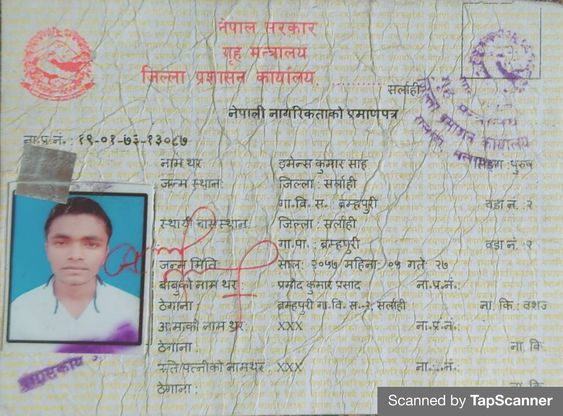 नेपाल सरकार
गृह मन्त्रालय
जिल्ला प्रशासन कार्यालय, ............ सर्लाही
नेपाली नागरिकताको प्रमाणपत्र
ना.प्र.नं.: १९-०१-७३-१३०८७
नाम थर : इमेन्स कुमार साह लिङ्ग: पुरुष
जन्म स्थान: जिल्ला : सर्लाही
गा.वि.स. : ब्रम्हपुरी वडा नं.: २
स्थायी बासस्थान: जिल्ला : सर्लाही
गा.पा. : ब्रम्हपुरी वडा नं.: २
जन्म मिति : साल: २०५७ महिना: ०५ गते: २७
बाबुको नाम थर : प्रमोद कुमार प्रसाद ना.प्र.नं.:
ठेगाना: ब्रम्हपुरी गा.वि.स.-२, सर्लाही ना.कि.: वंशज
आमाको नाम थर: XXX ना.प्र.नं.:
ठेगाना: ना.कि.
पति/पत्नीको नाम थर: XXX ना.प्र.नं.:
ठेगाना : ना.कि.
Scanned by TapScanner